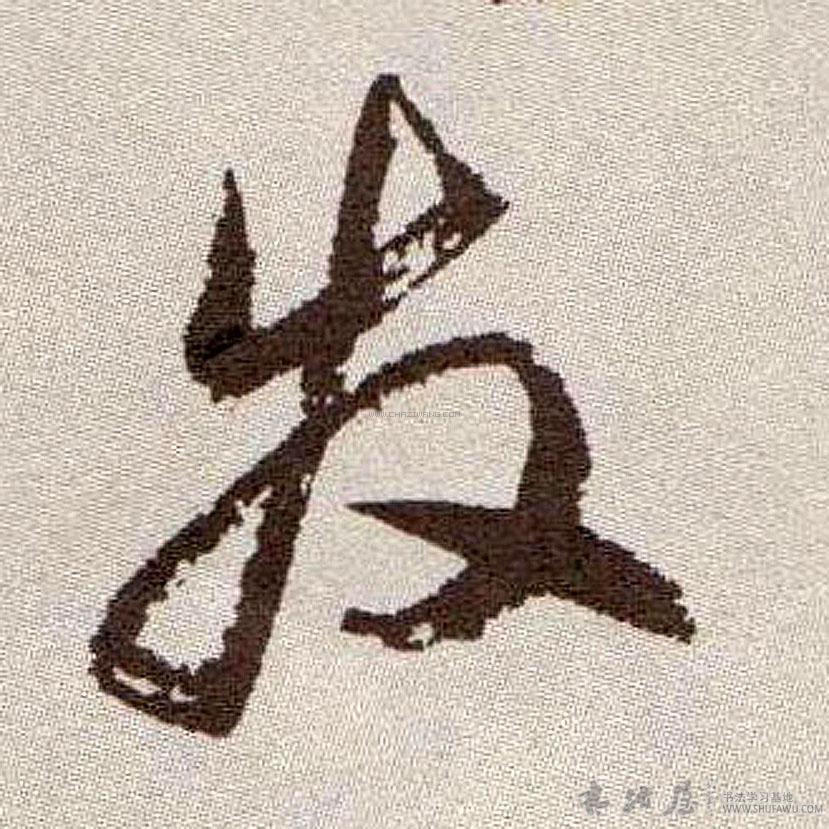 发
WWW.CHAZIWANG.COM
书法学习基地
WWW.SHUFAWU.COM